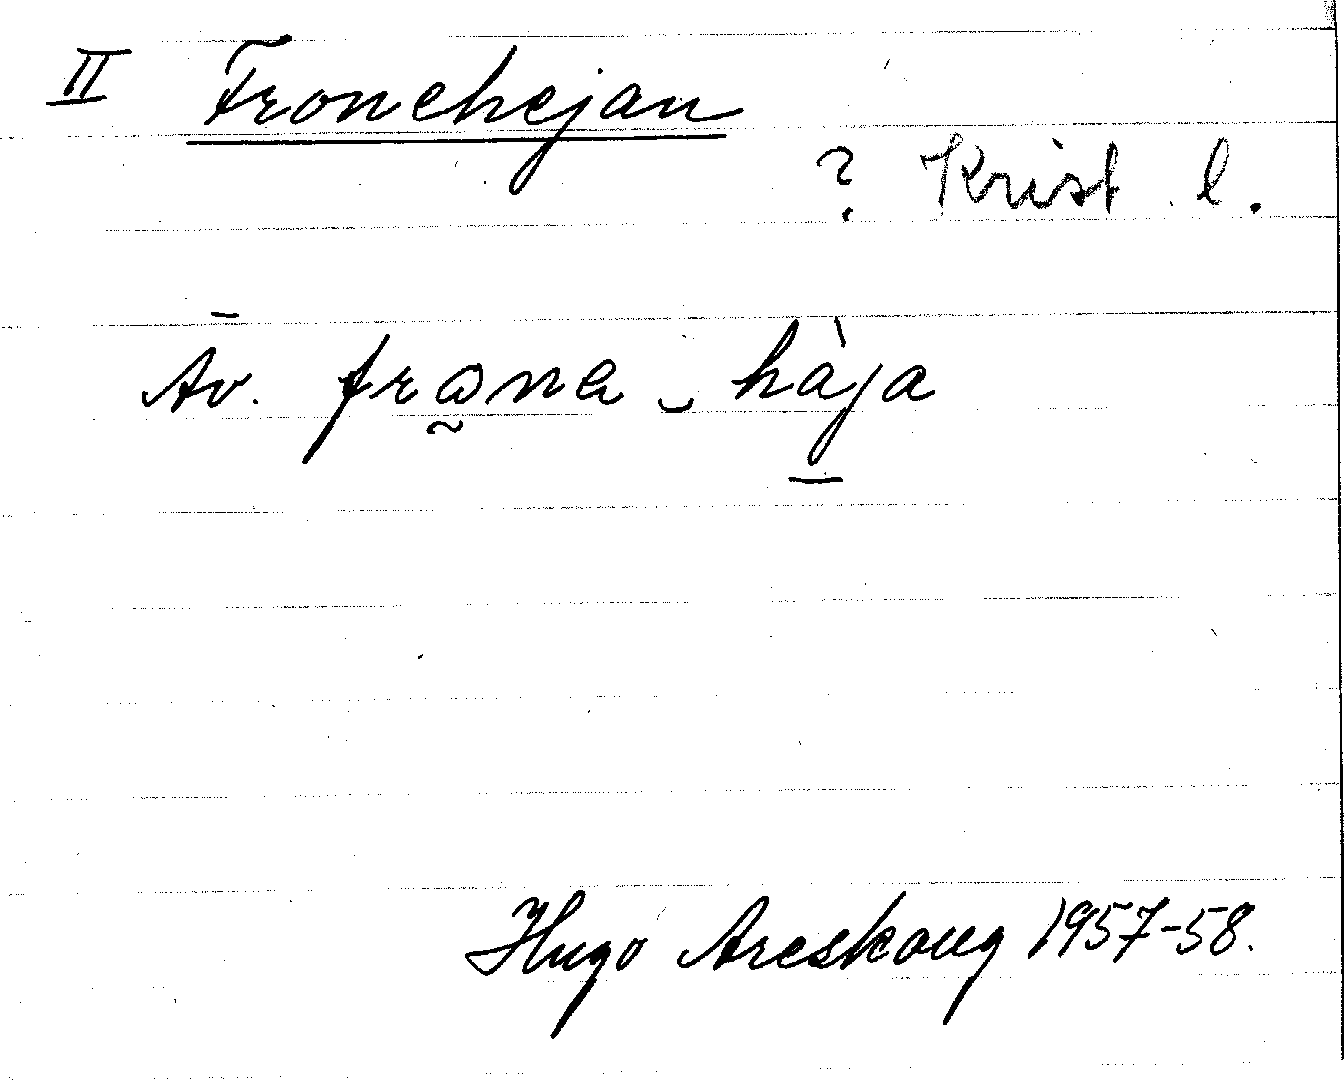 II Fronehejan
? Krist l.
Av. frone ‿ hàja
Hugo Areskoug 1957-58.